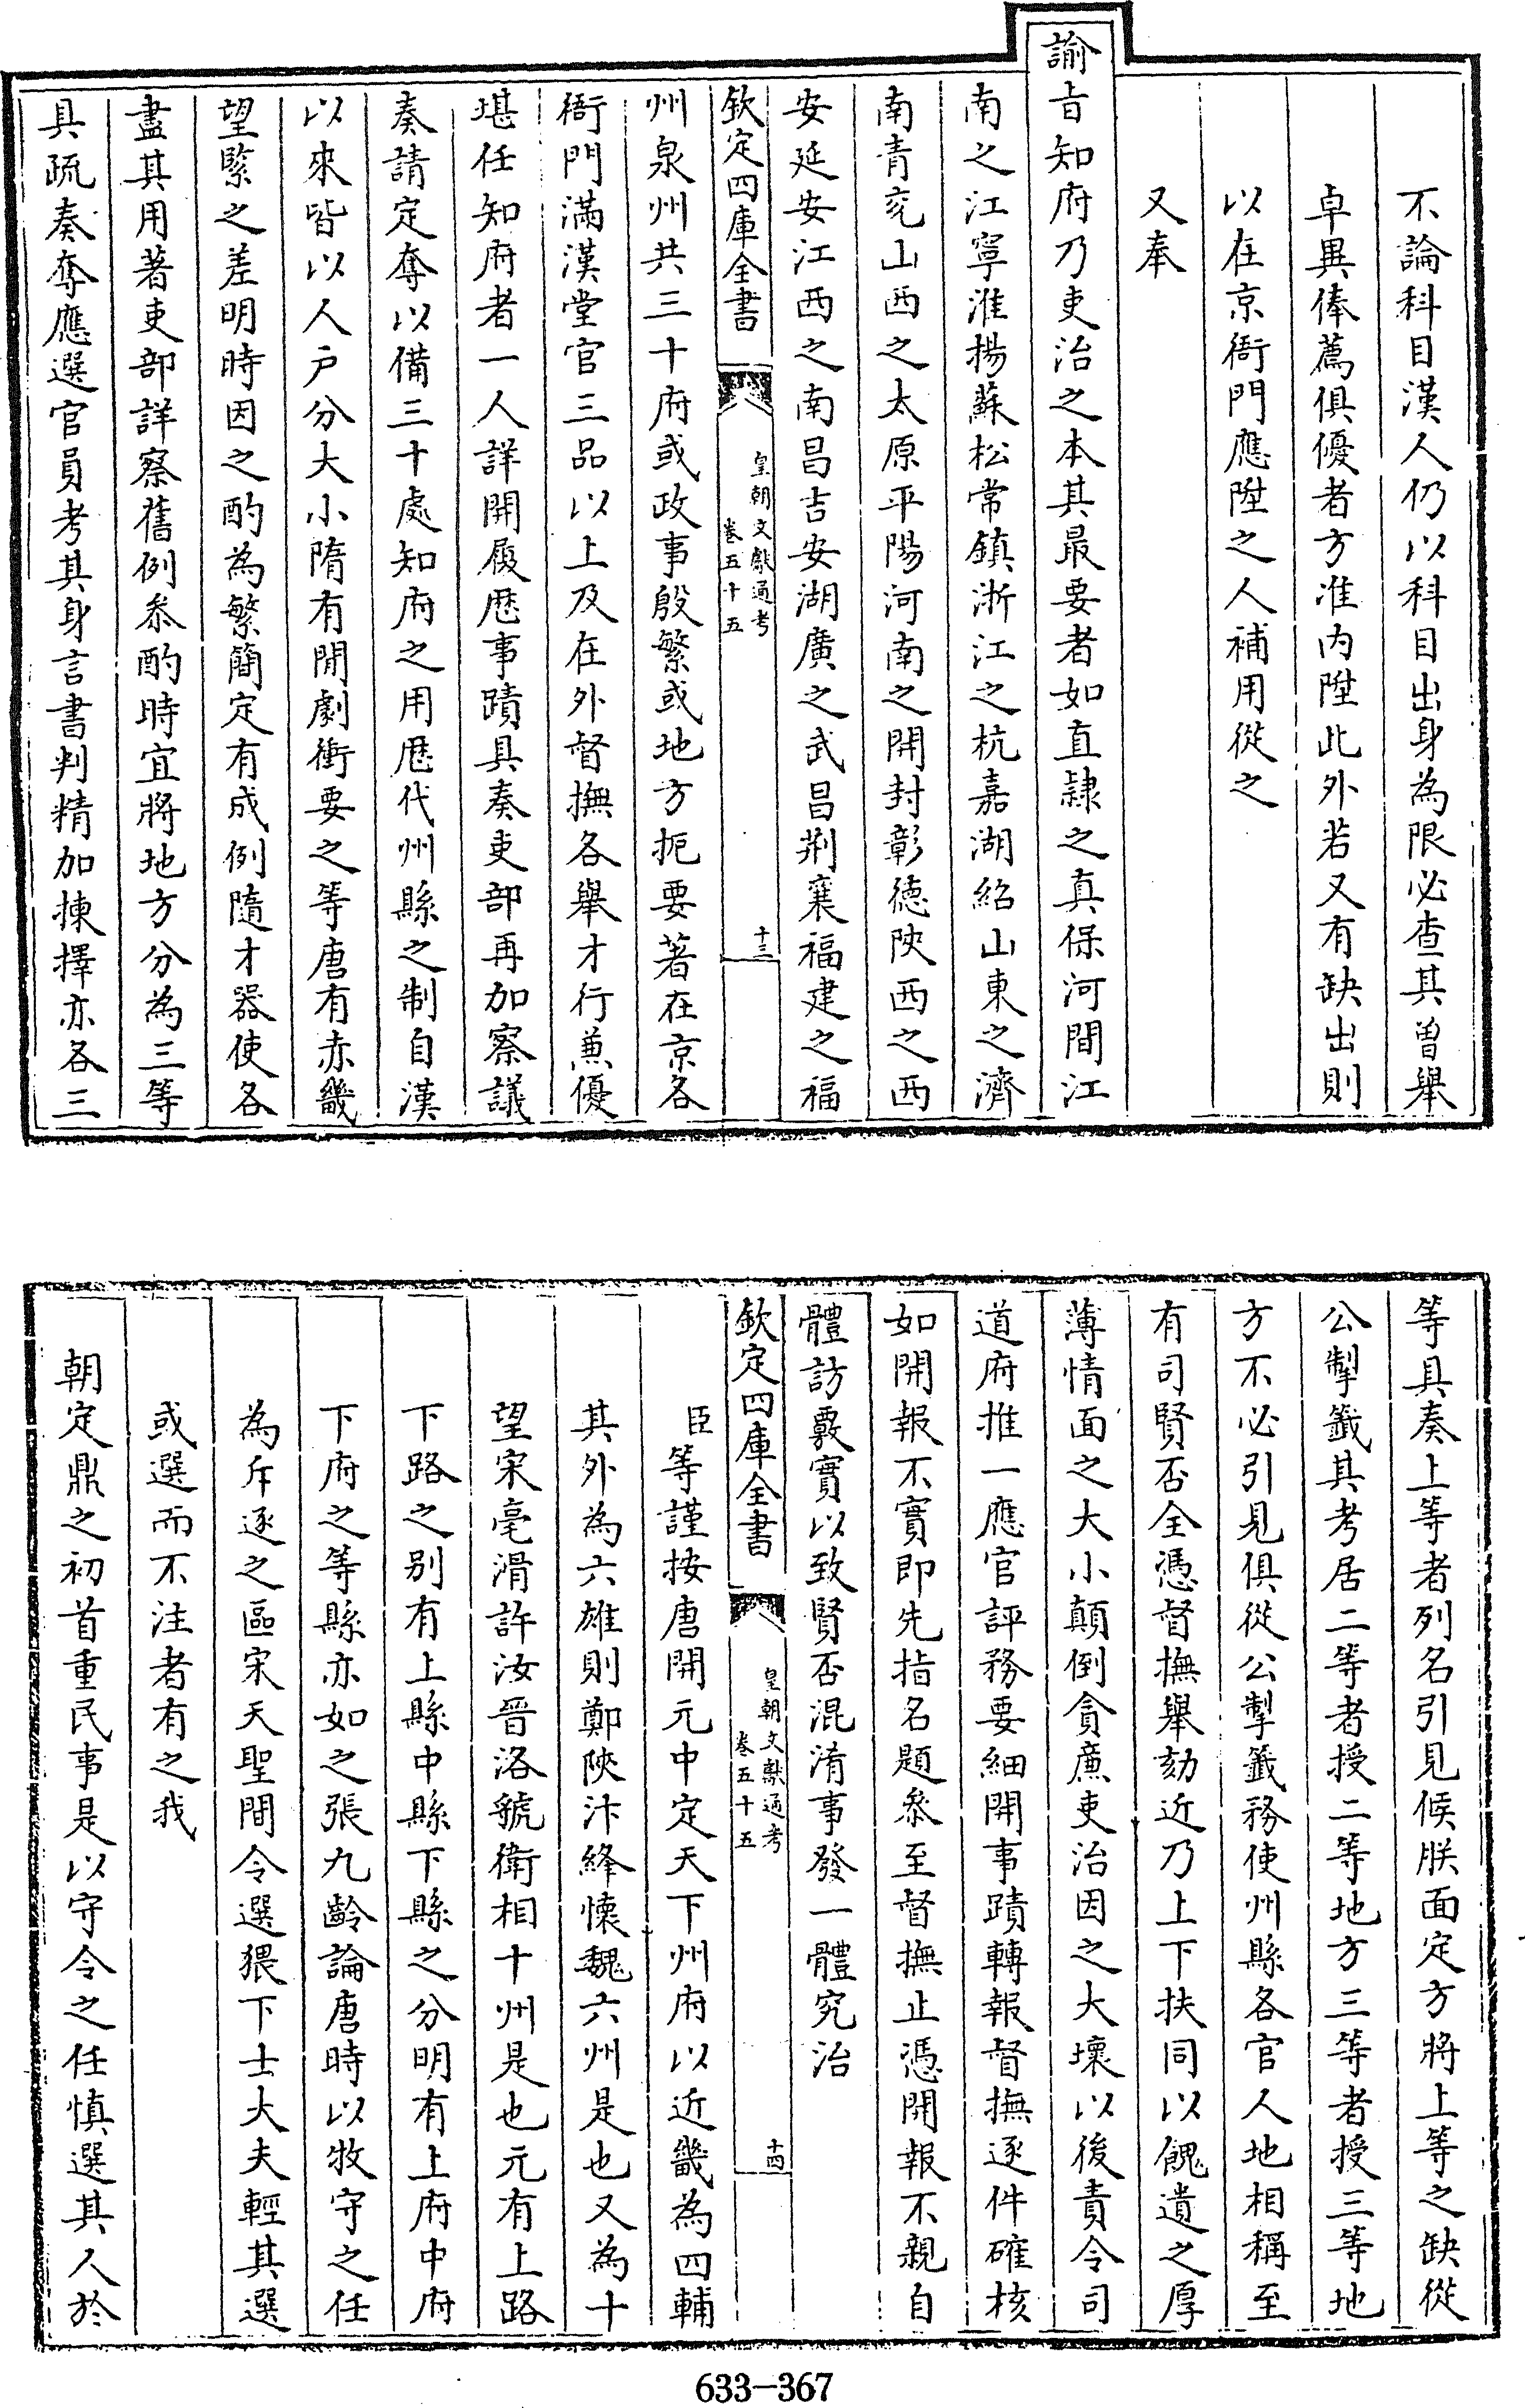 不論科目漢人仍以科目出身為限必查其曽舉
卓異俸薦俱優者方准内陞此外若又有缺出則
以在京衙門應陞之人補用從之
又奉
諭旨知府乃吏治之本其最要者如直隷之真保河間江
南之江寧淮揚蘇松常鎮浙江之杭嘉湖紹山東之濟
南青兗山西之太原平陽河南之開封彰德陜西之西
安延安江西之南昌吉安湖廣之武昌荆襄福建之福
欽定四庫全書
皇朝文獻通考
卷五十五
十三
州泉州共三十府或政事殷繁或地方扼要著在京各
衙門滿漢堂官三品以上及在外督撫各舉才行兼優
堪任知府者一人詳開履歴事蹟具奏吏部再加察議
奏請定奪以備三十處知府之用歴代州縣之制自漢
以來皆以人户分大小隋有閒劇衝要之等唐有赤畿
望緊之差明時因之酌為繁簡定有成例隨才器使各
盡其用著吏部詳察舊例叅酌時宜將地方分為三等
具疏奏奪應選官員考其身言書判精加揀擇亦各三
等具奏上等者列名引見候朕面定方將上等之缺從
公掣籤其考居二等者授二等地方三等者授三等地
方不必引見俱從公掣籤務使州縣各官人地相稱至
有司賢否全憑督撫舉劾近乃上下扶同以餽遺之厚
薄情面之大小顛倒貪廉吏治因之大壞以後責令司
道府推一應官評務要細開事蹟轉報督撫逐件確核
如開報不實即先指名題叅至督撫止憑開報不親自
體訪覈實以致賢否混淆事發一體究治
欽定四庫全書
皇朝文獻通考
卷五十五
十四
臣等謹按唐開元中定天下州府以近畿為四輔
其外為六雄則鄭陜汴絳懷魏六州是也又為十
望宋亳滑許汝晉洛虢衛相十州是也元有上路
下路之别有上縣中縣下縣之分明有上府中府
下府之等縣亦如之張九齡論唐時以牧守之任
為斥逐之區宋天聖間令選猥下士大夫輕其選
或選而不注者有之我
朝定鼎之初首重民事是以守令之任慎選其人於
633-367